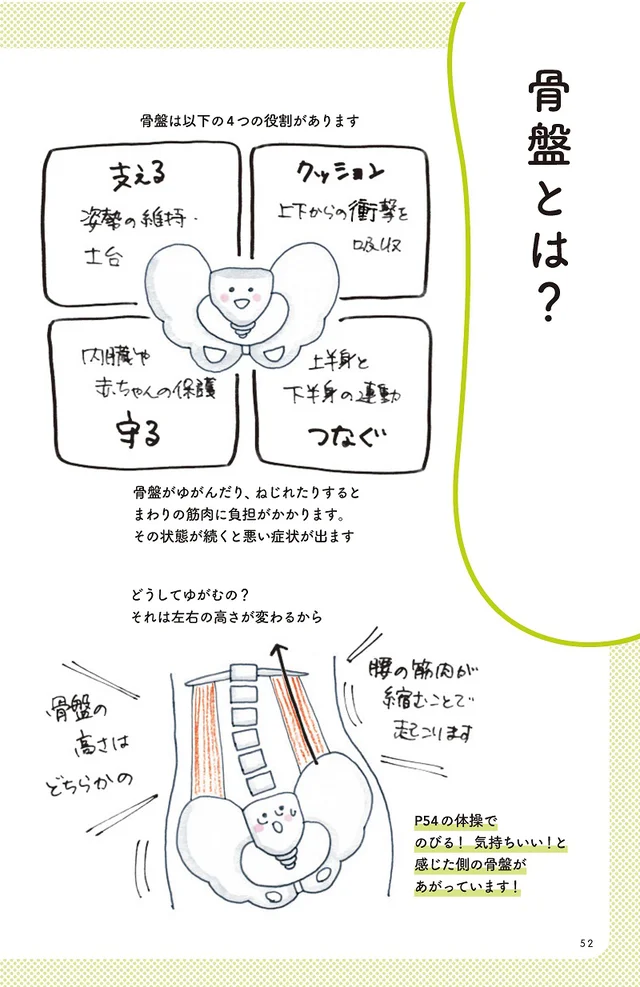 骨盤とは？
骨盤は以下の4つの役割があります
支える
姿勢の維持・
土台
クッション
上下からの衝撃を
吸収
内臓や
赤ちゃんの保護
守る
上半身と
下半身の連動
つなぐ
骨盤がゆがんだり、ねじれたりすると
まわりの筋肉に負担がかかります。
その状態が続くと悪い症状が出ます
どうしてゆがむの？
それは左右の高さが変わるから
骨盤の
高さは
どちらかの
腰の筋肉が
縮むことで
起こります
P54の体操で
のびる！ 気持ちいい！と
感じた側の骨盤が
あがっています！
52